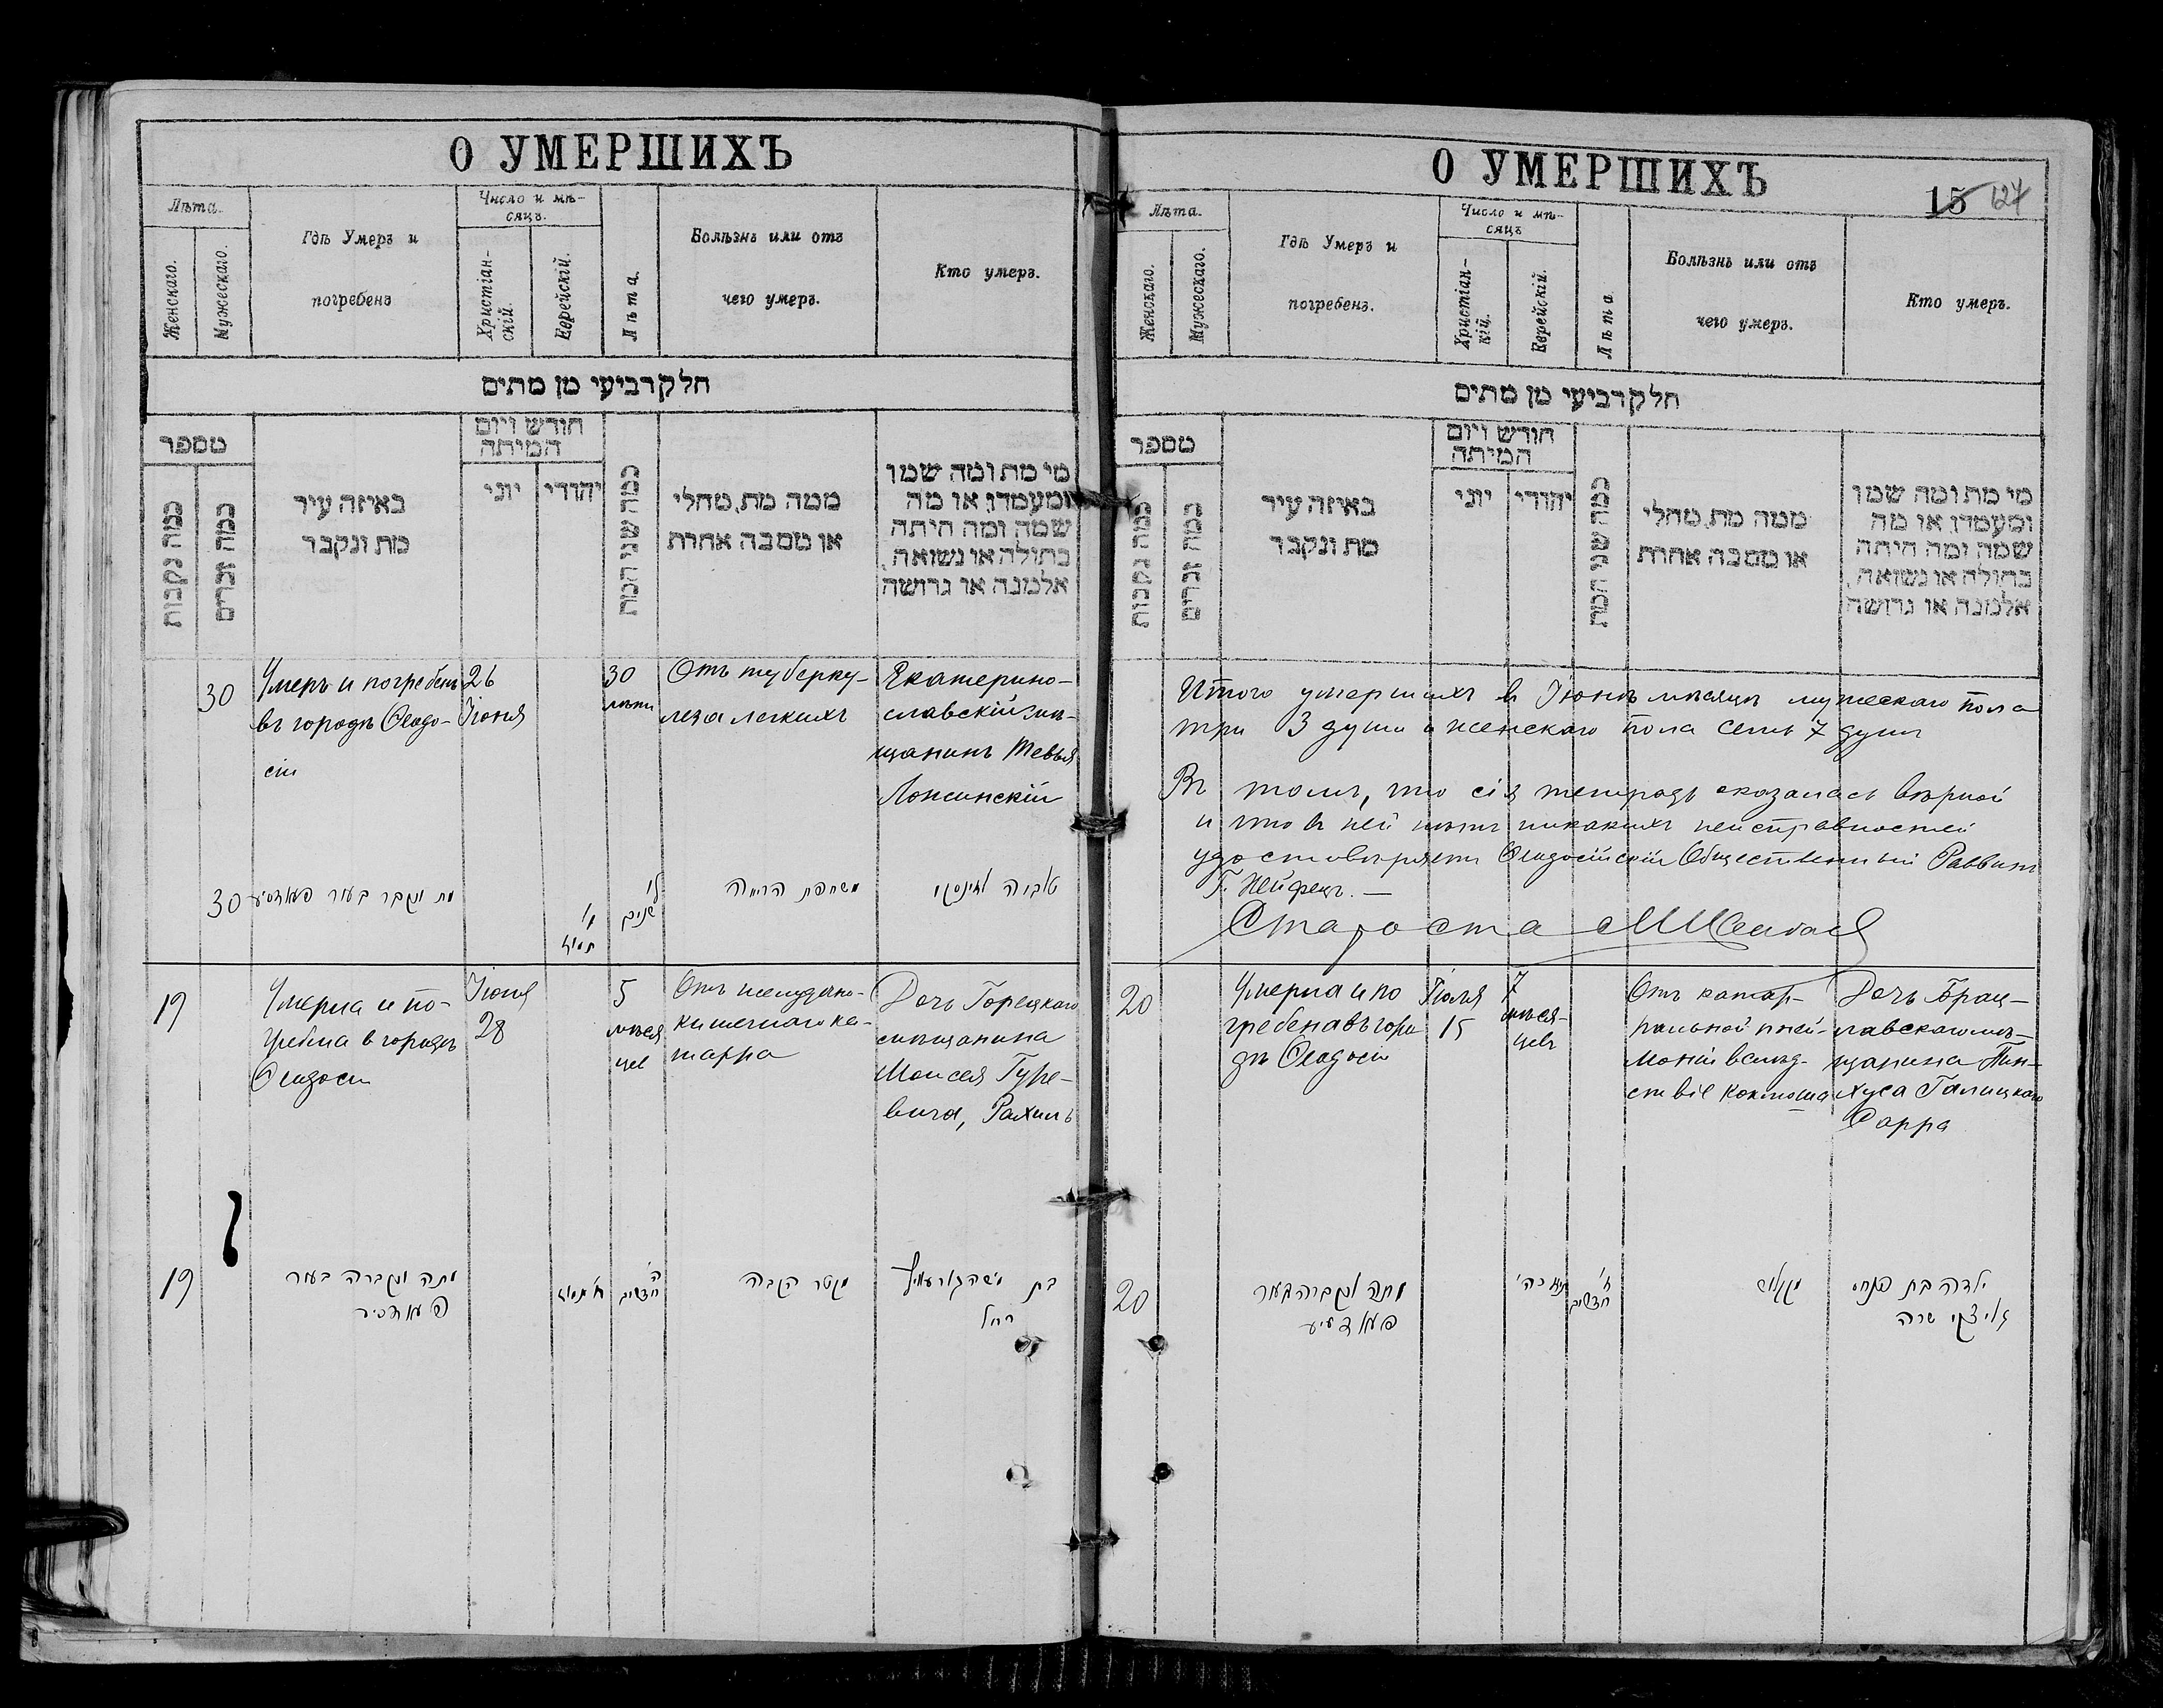 О УМЕРШИХЪ
Лѣта.
Женскаго.
Мужескаго.
Гдѣ Умеръ и
погребенъ
Число и мѣ-
сяцъ.
Христіан-
скій.
Еврейскій.
Лѣта.
Болѣзнь или отъ
чего умеръ.
Кто умеръ.
חלק רביעי מן מתים
מספר
כמה נקבות
כמה זכרים
באיזה עיר
מת ונקבר
חודש ויום
המיתה
יוני
יהודי
כמה שני המת
ממה מת, מחלי
או מסבה אחרת
מי מת ומה שמו
ומעמדו, או מה
שמה ומה היתה
בתולה או נשואה,
אלמנה או גרושה
30
Умеръ и погребенъ
въ городѣ Ѳеодо-
сіи
26
Іюня
30
лѣтъ
Отъ туберку-
леза легкихъ
Екатерино-
славскій мѣ-
щанинъ Тевья
30
מת ונקבר בעיר
ל׳
שנים
תמוז
19
Умерла и по-
гребена в городѣ
Ѳеодосіи
Іюня
28
5
мѣся
цев
Отъ желудочно-
кишечнаго ка-
тарра
Дочь Горецкаго
мѣщанина
Моисея Гуре-
вича, Рахиль
19
מתה ונקברה בעיר
תמוז
ה׳
חדשים
קטר הקבה
בת משה גורעוויץ
רחל
О УМЕРШИХЪ
15 127
Лѣта.
Женскаго.
Мужескаго.
Гдѣ Умеръ и
погребенъ.
Число и мѣ-
сяцъ
Христіан-
кій.
Еврейскій.
Лѣта
Болѣзнь или отъ
чего умеръ.
Кто умеръ.
חלק רביעי מן מתים
מספר
כמה נקבות
כמה זכרים
באיזה עיר
מת ונקבר
חודש ויום
המיתה
יוני
יהודי
כמה שני המת
ממה מת, מחלי
או מסבה אחרת
מי מת ומה שמו
ומעמדו, או מה
שמה ומה היתה
בתולה או נשואה,
אלמנה או גרושה
Итого умершихъ въ Іюнѣ мѣсяцѣ мужескаго пола
три 3 души и женскаго пола семь 7 душъ
Въ томъ, что сія тетрадь оказалась вѣрной
и что в ней нѣтъ никакихъ неисправностей
удостовѣряетъ Ѳеодосійскій Общественный Раввинъ
Г. Нейфецъ. —
Староста
20
Умерла и по
гребена въ горо
дѣ Ѳеодосіи
Іюля
15
7
мѣся-
цевъ
Отъ катар-
ральной пней-
моніи вслѣд-
ствіе коклюша
Дочь Брац-
лавскаго мѣ-
щанина Пин-
хуса Галицкаго
Сарра
20
מתה ונקברה בעיר
חדשים
ילדה בת פנחס
גאליצקי שרה